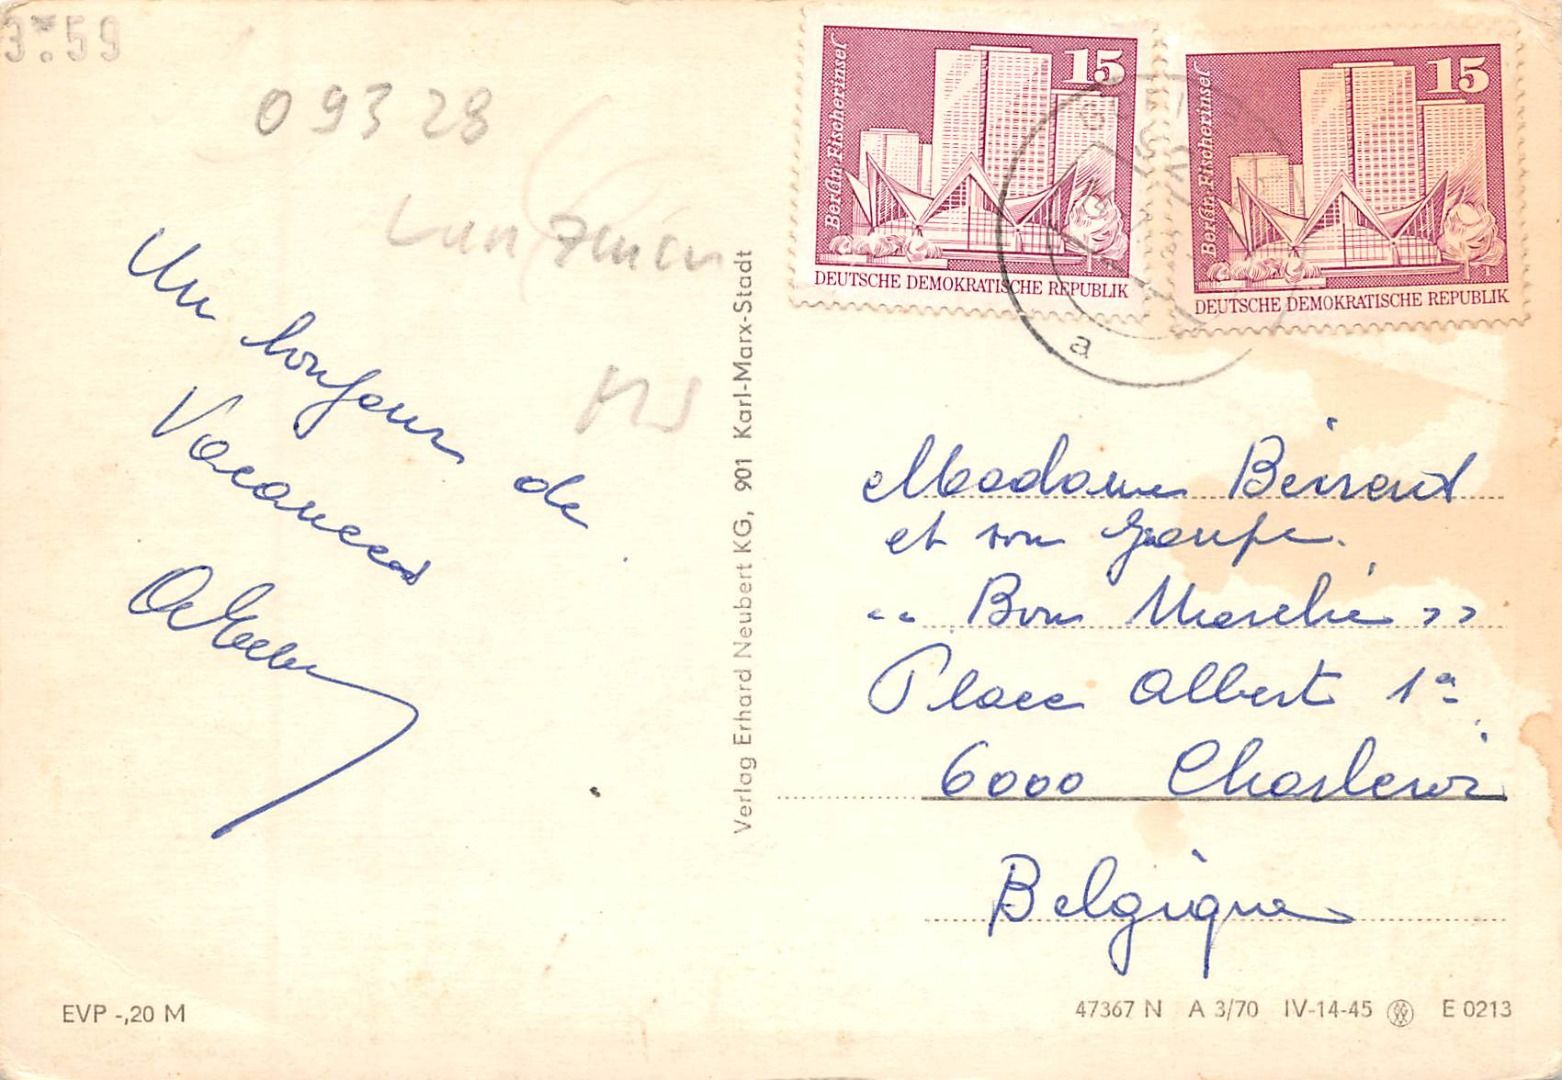 3.59
09328
Lunzenau
Un bonjour de
Vacances
Berlin Fischerinsel
15
DEUTSCHE DEMOKRATISCHE REPUBLIK
Berlin Fischerinsel
15
DEUTSCHE DEMOKRATISCHE REPUBLIK
a
Verlag Erhard Neubert KG, 901 Karl-Marx-Stadt
Madame
et son groupe.
"Bon Marché"
Place Albert 1er
6000 Charleroi
Belgique
EVP -,20 M
47367 N A 3/70 IV-14-45 E 0213